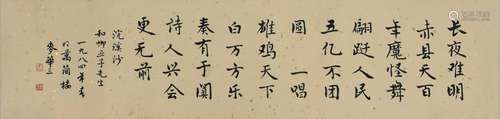 长夜难明
赤县天百
年魔怪舞
翩跹人民
五亿不团
圆 一唱
雄鸡天下
白万方乐
奏有于阗
诗人兴会
更无前
浣溪沙
和柳亚子先生
一九八四年春
麥華三